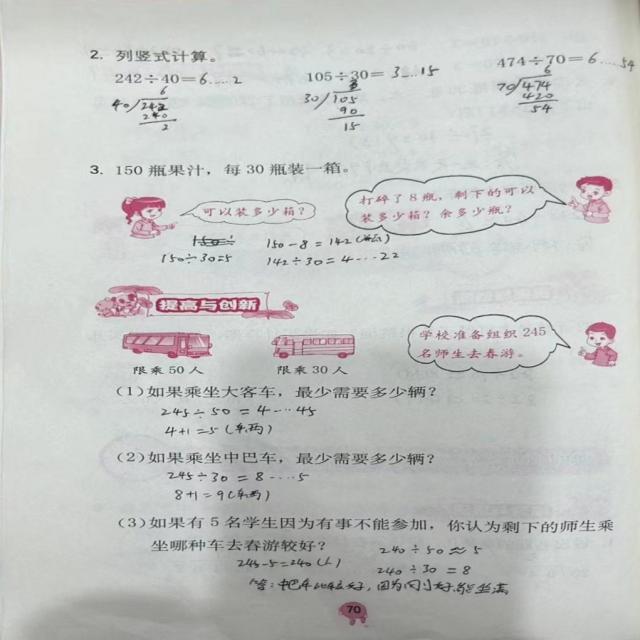 2. 列竖式计算。
242÷40=6……2 105÷30=3…15 474÷70=6…54
6
40 242
240
2
3
30 105
90
15
6
70 474
420
54
3. 150瓶果汁，每30瓶装一箱。
可以装多少箱？
打碎了8瓶，剩下的可以
装多少箱？余多少瓶？
150÷30=5
150-8=142
142÷30=4…22
提高与创新
限乘50人 限乘30人
学校准备组织245
名师生去春游。
(1)如果乘坐大客车，最少需要多少辆？
245÷50=4…45
4+1=5(车两)
(2)如果乘坐中巴车，最少需要多少辆？
245÷30=8…5
8+1=9(车两)
(3)如果有5名学生因为有事不能参加，你认为剩下的师生乘
坐哪种车去春游较好？
245-5=240(人)
240÷50≈5
240÷30=8
答:中巴车比较好,因为刚好能坐满
70